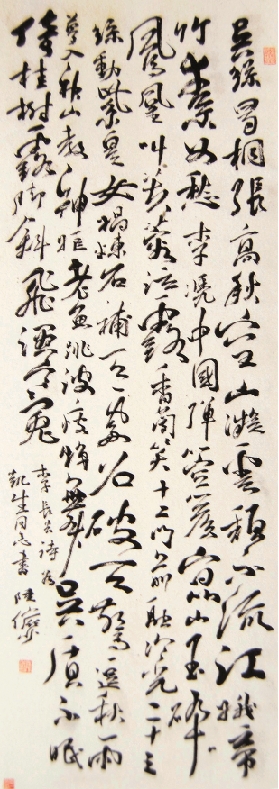 吳絲蜀桐張高秋空山凝雲頹不流江娥啼
竹素女愁李憑中國彈箜篌崑山玉碎
鳳凰叫芙蓉泣露香蘭笑十二門前融冷光二十三
絲動紫皇女媧煉石補天處石破天驚逗秋雨
夢入神山教神嫗老魚跳波瘦蛟舞吳質不眠
倚桂樹露腳斜飛濕寒兔
李長吉詩為
凱生同志書 陸儼少